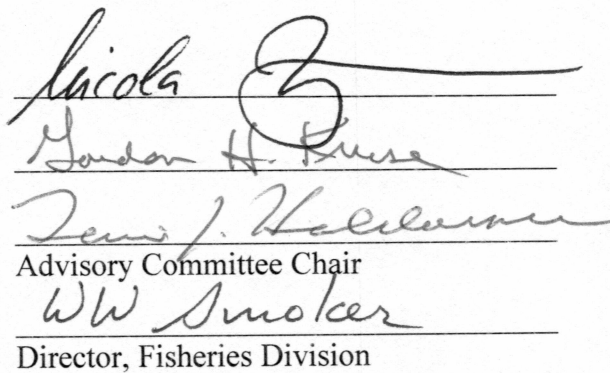 Nicola
Gordon H. Kruse
J. Haldorson
Advisory Committee Chair
WW Smoker
Director, Fisheries Division